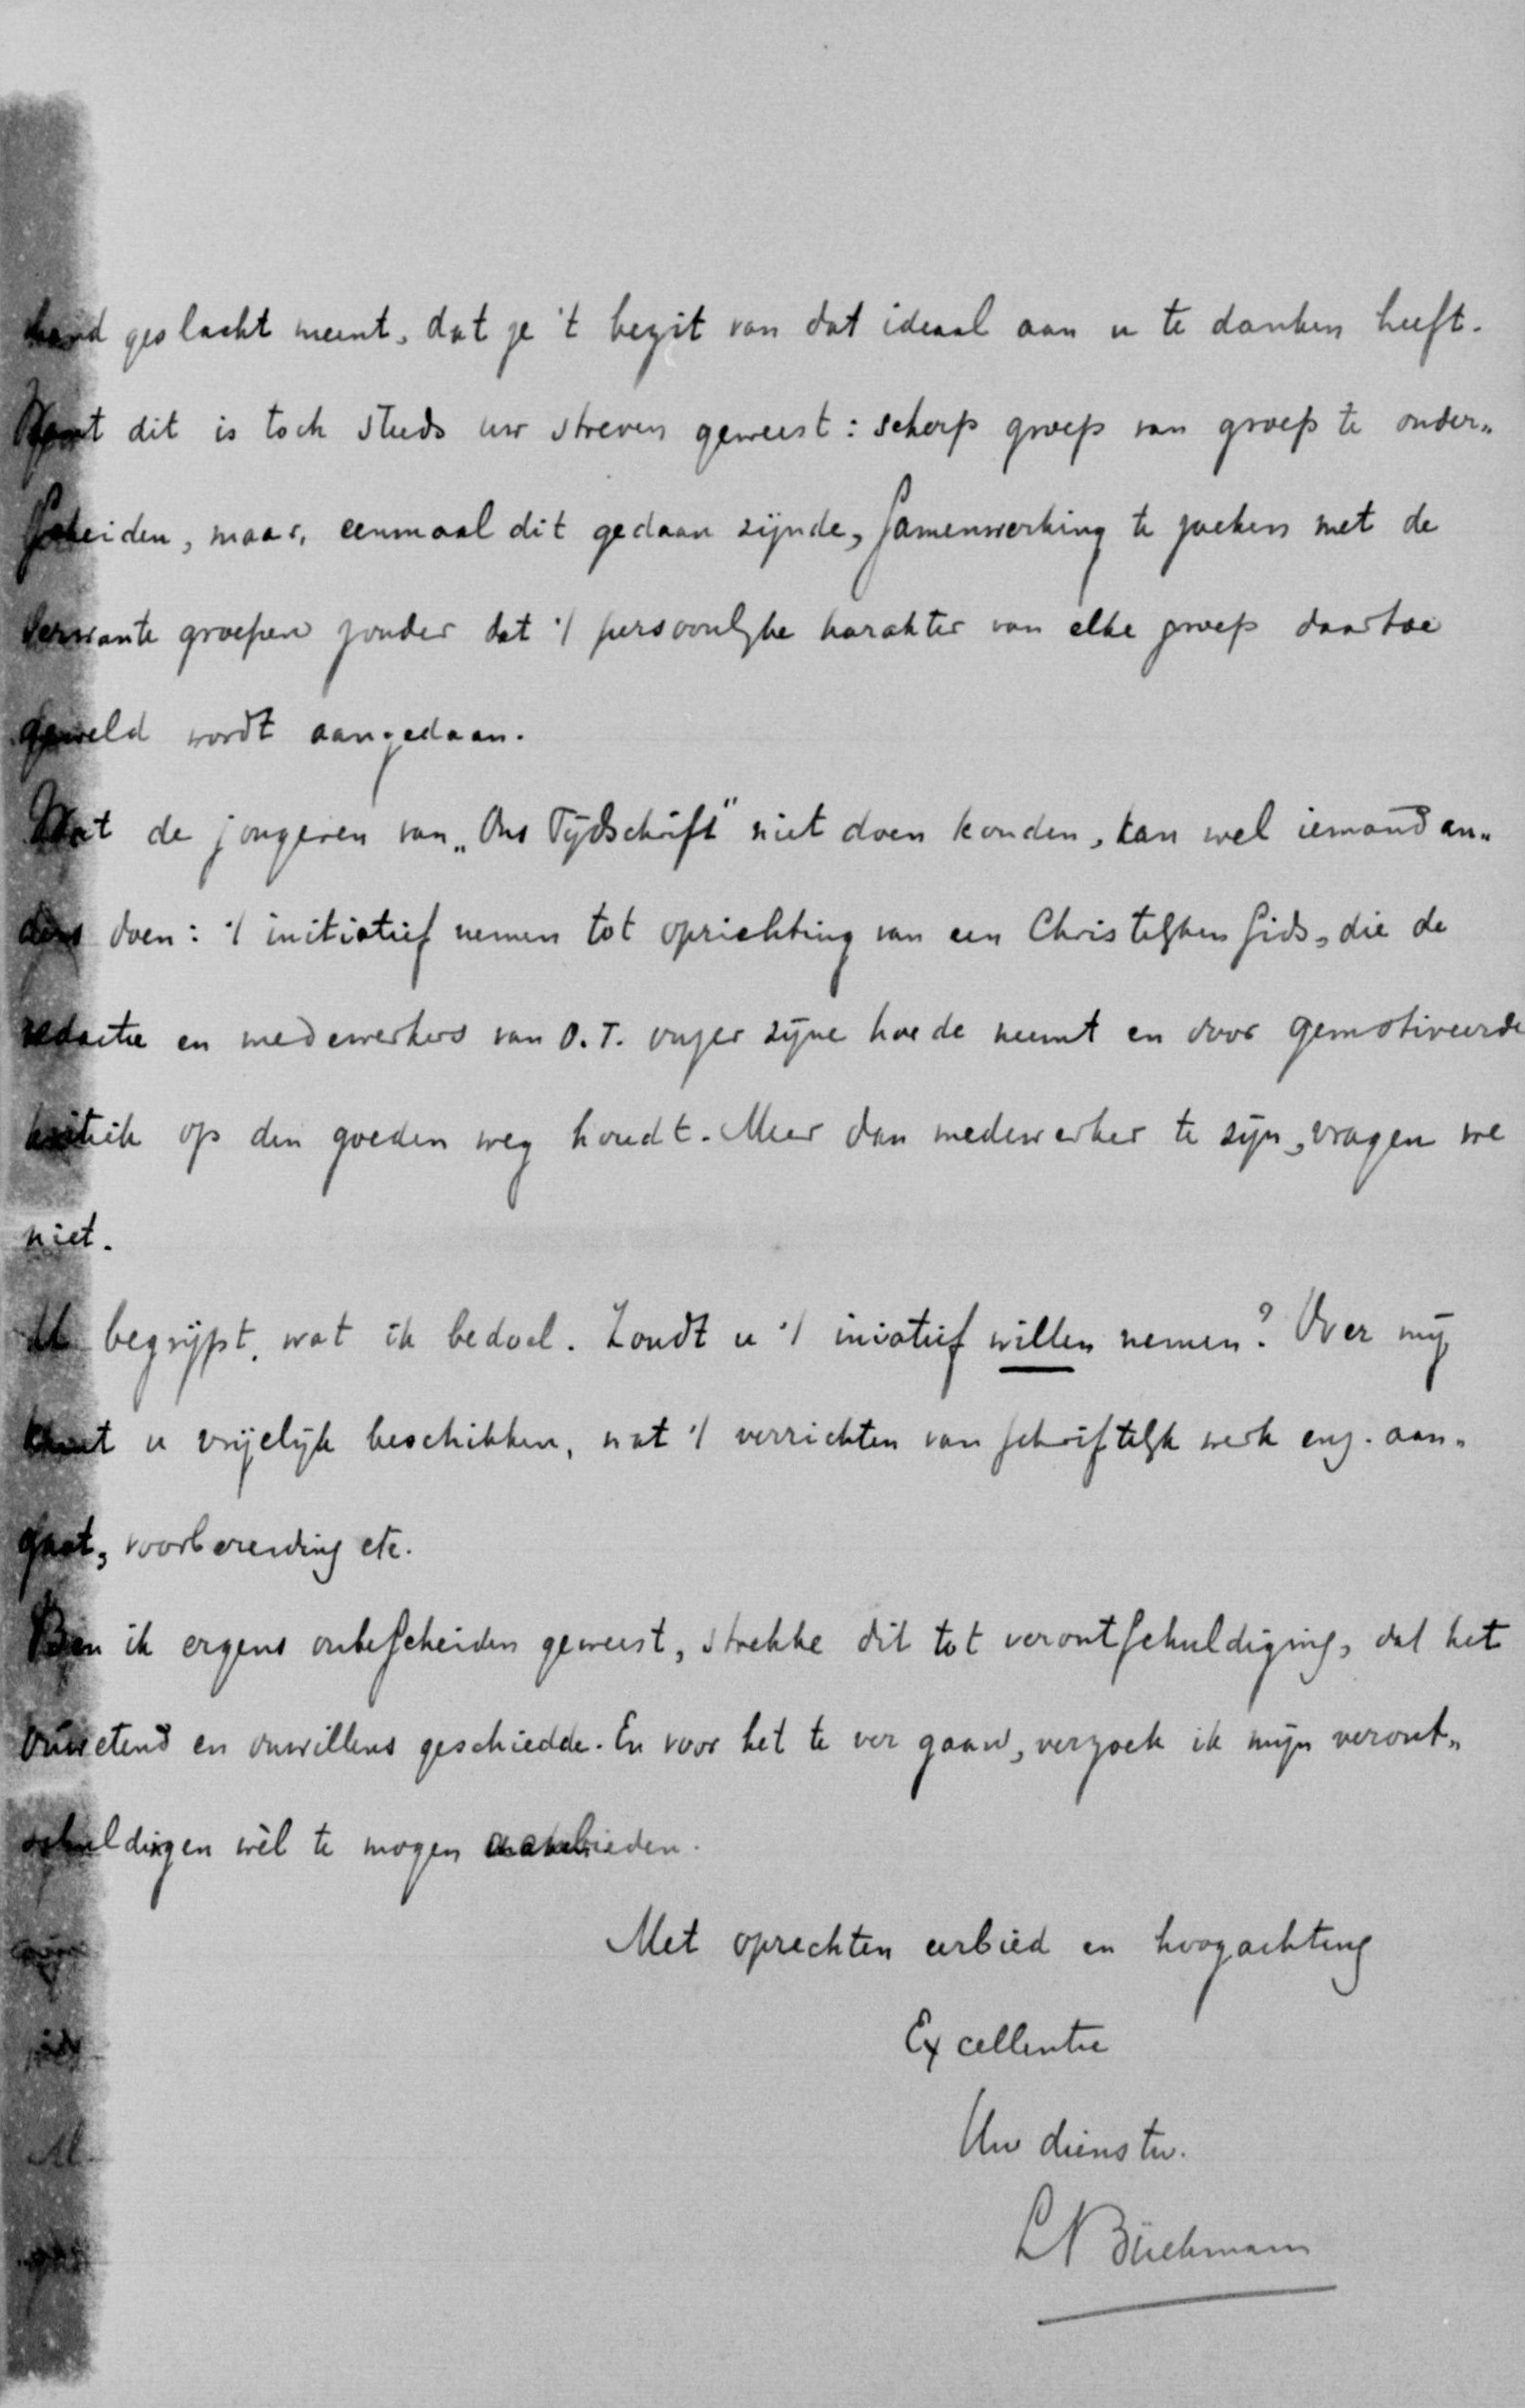 hand geslacht meent, dat ze 't bezit van dat ideaal aan u te danken heeft.
Want dit is toch steeds uw streven geweest: scherp groep van groep te onder„
scheiden, maar, eenmaal dit gedaan zijnde, samenwerking te zoeken met de
verwante groepen zonder dat 't persoonlijke karakter van elke groep daartoe
geweld wordt aangedaan.
Wat de jongeren van „Ons Tijdschrift" niet doen konden, kan wel iemand an„
ders doen: 't initiatief nemen tot oprichting van een Christelijken Gids, die de
redactie en medewerkers van O.T. onzer zijne hoede neemt en door gemotiveerde
kritiek op den goeden weg houdt. Meer dan medewerker te zijn, vragen we
niet.
U begrijpt, wat ik bedoel. Zoudt u 't iniatief willen nemen? Over mij
kunt u vrijelijk beschikken, wat 't verrichten van schriftelijk werk enz. aan„
gaat, voorbereiding etc.
Ben ik ergens onbescheiden geweest, strekke dit tot verontschuldiging, dat het
onwetend en onwillens geschiedde. En voor het te ver gaan, verzoek ik mijn veront„
schuldigen wèl te mogen aanbieden.
Met oprechten eerbied en hoogachting
Excellentie
Uw dienstw.
LN Büchmann